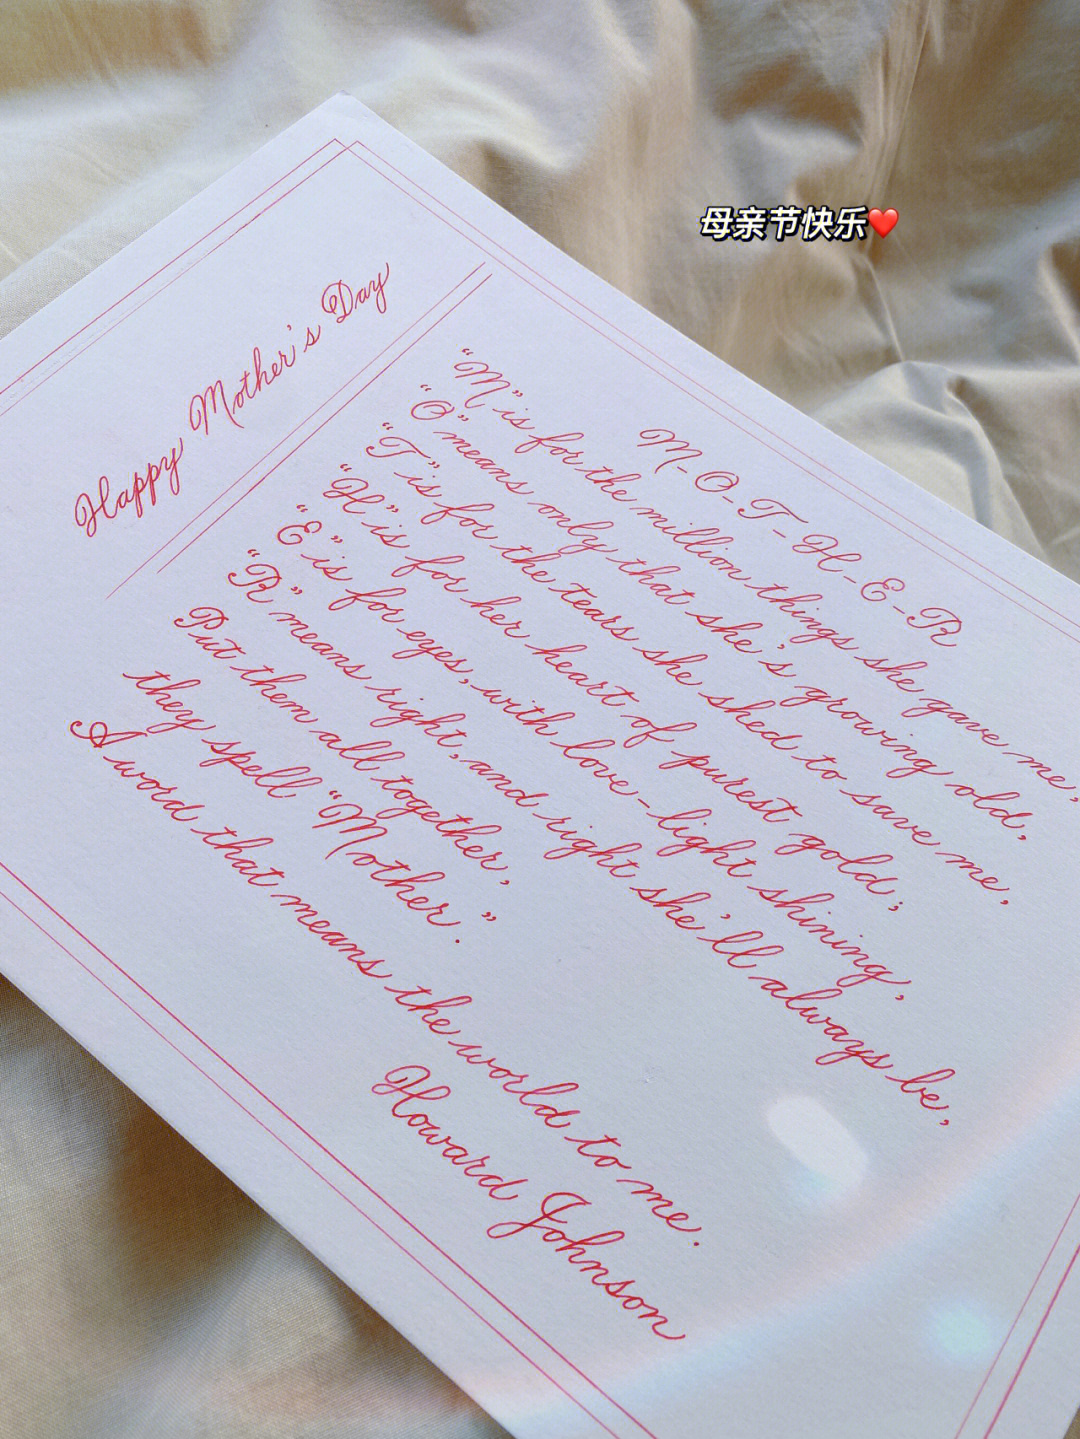 母亲节快乐❤️
Happy Mother's Day
M-O-T-H-E-R
"M" is for the million things she gave me,
"O" means only that she's growing old,
"T" is for the tears she shed to save me,
"H" is for her heart of purest gold;
"E" is for eyes, with love-light shining,
"R" means right, and right she'll always be,
Put them all together,
they spell "Mother."
A word that means the world to me.
Howard Johnson